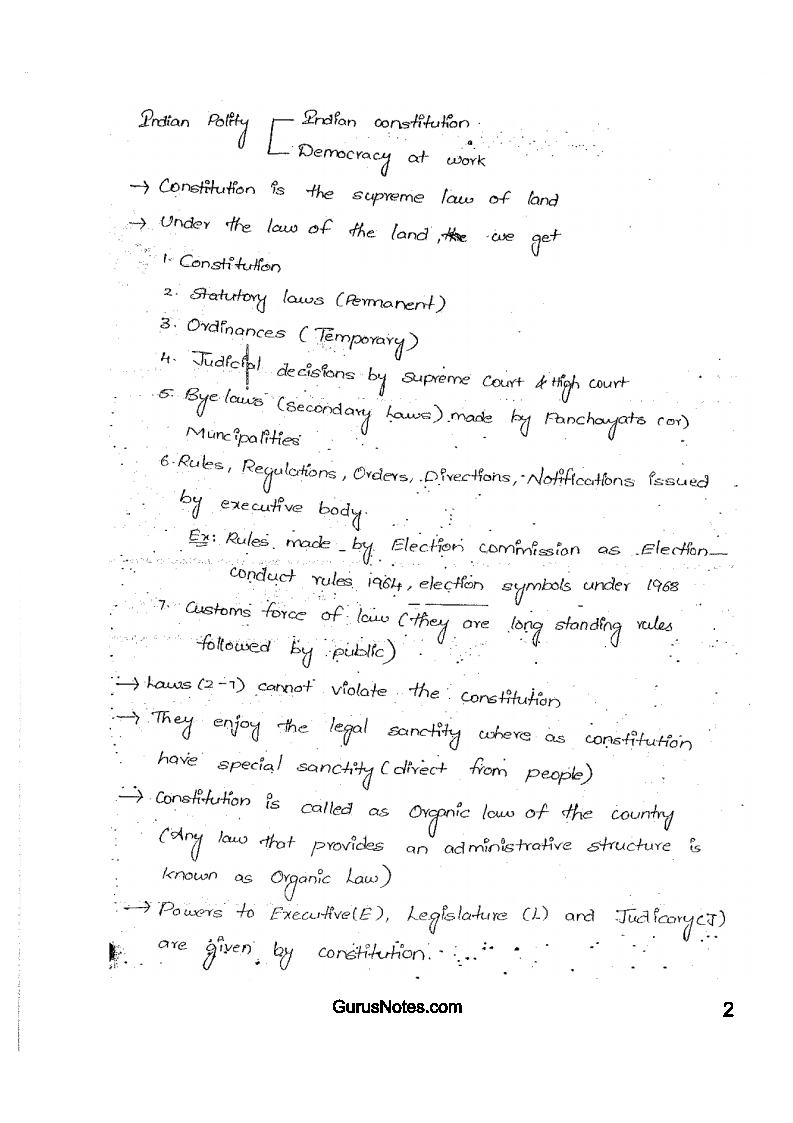 Indian Polity Indian constitution.
Democracy at work
→ Constitution is the supreme law of land
→ Under the law of the land, we get
1. Constitution
2. Statutory laws (Permanent)
3. Ordinances (Temporary)
4. Judicial decisions by Supreme Court & High court
5. Bye laws (secondary Laws) made by Panchayats (or)
Muncipalities
6. Rules, Regulations, Orders, Directions, Notifications issued
by executive body.
Ex: Rules made by Election commission as Election
conduct rules 1964, election symbols under 1968
7. Customs force of law (they are long standing rules
followed by public)
→ Laws (2-7) cannot violate the constitution
→ They enjoy the legal sanctity where as constitution
have special sanctity (direct from people)
→ Constitution is called as Organic law of the country
(Any law that provides an administrative structure is
known as Organic Law)
→ Powers to Executive(E), Legislature (L) and Judicary(J)
are given by constitution.
GurusNotes.com 2